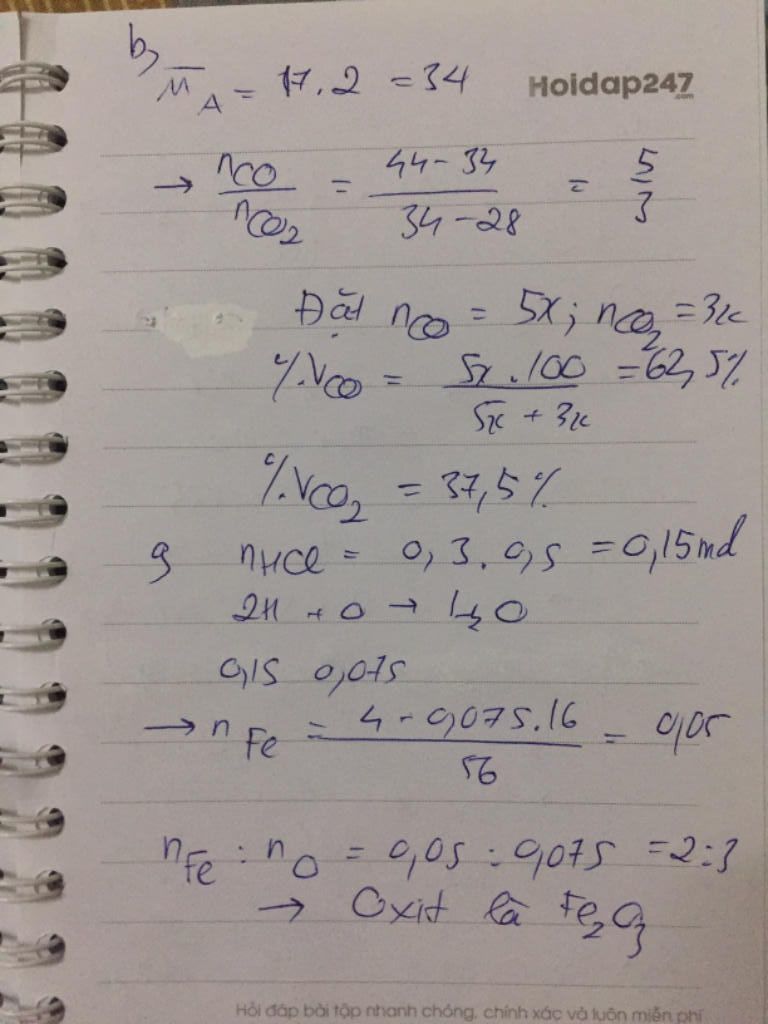 b,
M̄A = 17.2 = 34
Hoidap247
.com
→ nCO / nCO2 = (44 - 34) / (34 - 28) = 5/3
Đặt nCO = 5x; nCO2 = 3x
%VCO = 5x.100 / (5x + 3x) = 62,5%
%VCO2 = 37,5%
nHCl = 0,3.0,5 = 0,15mol
2H + O → H2O
0,15 0,075
→ nFe = (4 - 0,075.16) / 56 = 0,05
nFe : nO = 0,05 : 0,075 = 2:3
→ Oxit là Fe2O3
Hỏi đáp bài tập nhanh chóng, chính xác và luôn miễn phí